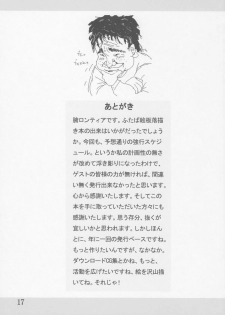 あとがき
彼ロンティアです。ふたば絵板落描
き本の出来はいかがだったでしょう
か。今回も、予想通りの強行スケジ
ュール。というか私の計画性の無さ
が改めて浮き彫りになったわけで、
ゲストの皆様の力が無ければ、間違
い無く発行出来なかったと思います。
心から感謝いたします。そしてこの
本を手に取っていただいた方々にも
感謝いたします。思う存分、抜くが
宜しいかと思われます。しかしほん
とに、年に一回の発行ペースですね。
もっと作りたいんですが、なかなか。
ダウンロードCG集とかね、もっと、
活動を広げたいですね。絵を沢山描
いてね。それじゃ!
17